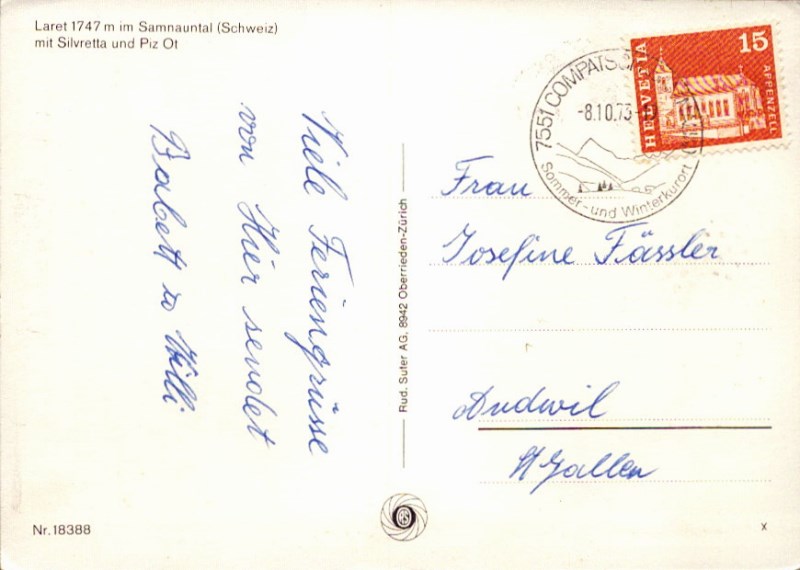 Laret 1747 m im Samnauntal (Schweiz)
mit Silvretta und Piz Ot
Viele Feriengrüsse
von Hier sendet
Babett u Willi
Rud. Suter AG, 8942 Oberrieden-Zürich
7551 COMPATSCH
-8.10.73-
Sommer- und Winterkurort
HELVETIA
15
APPENZELL
Frau
Josefine Fässler
Andwil
St Gallen
Nr. 18388
x